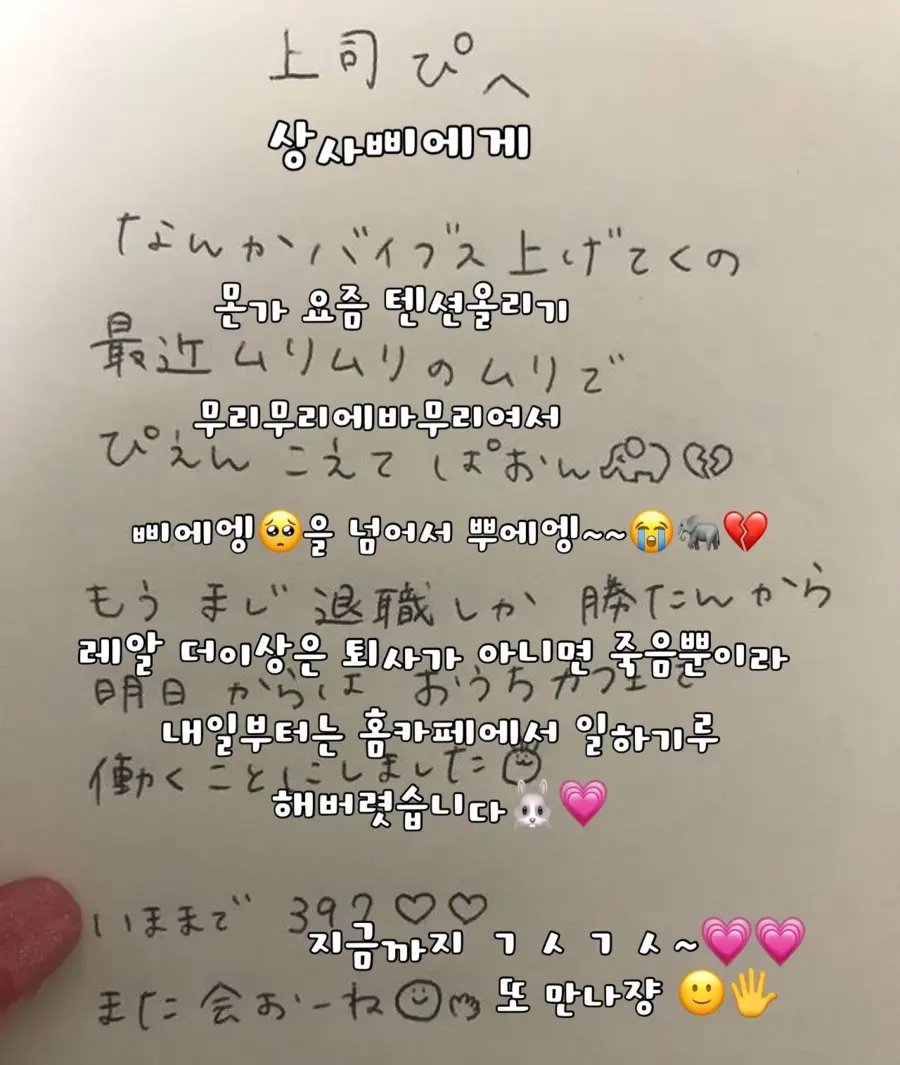 上司ぴへ
상사삐에게
なんかバイブス上げてくの
몬가 요즘 텐션올리기
最近ムリムリのムリで
무리무리에바무리여서
ぴえんこえてぱおん
삐에엥🥺을 넘어서 뿌에엥~~😭🐘💔
もうまじ退職しか勝たんから
레알 더이상은 퇴사가 아니면 죽음뿐이라
明日からは おうちカフェで
내일부터는 홈카페에서 일하기루
働くことにしました
해버렷습니다🐰💗
いままで 397♡♡
지금까지 ㄱㅅㄱㅅ~💗💗
また会おーね
또 만나쟝 🙂🖐